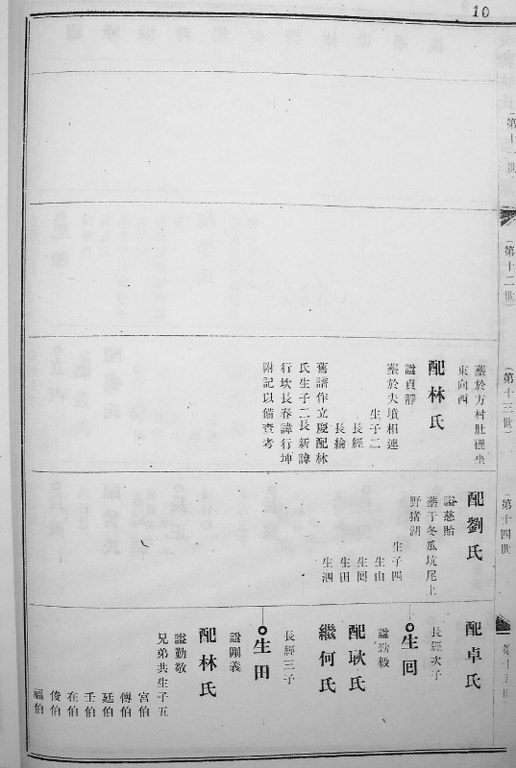 10
(第十一世)
(第十二世)
(第十三世)
葬於方村肚穩坐
東向西
配林氏
諡貞靜
葬於夫墳相連
生子二
長經
長綸
舊譜作立慶配林
氏生子二長新諱
行坎長春諱行坤
附記以備查考
(第十四世)
配劉氏
諡慈貽
葬于冬瓜坑尾上
野猪湖
生子四
生山
生囘
生田
生泗
配卓氏
長經次子
生囘
諡勤毅
配耿氏
繼何氏
長經三子
生田
諡剛義
配林氏
諡勤敬
兄弟共生子五
宮伯
傳伯
廷伯
壬伯
在伯
俊伯
福伯